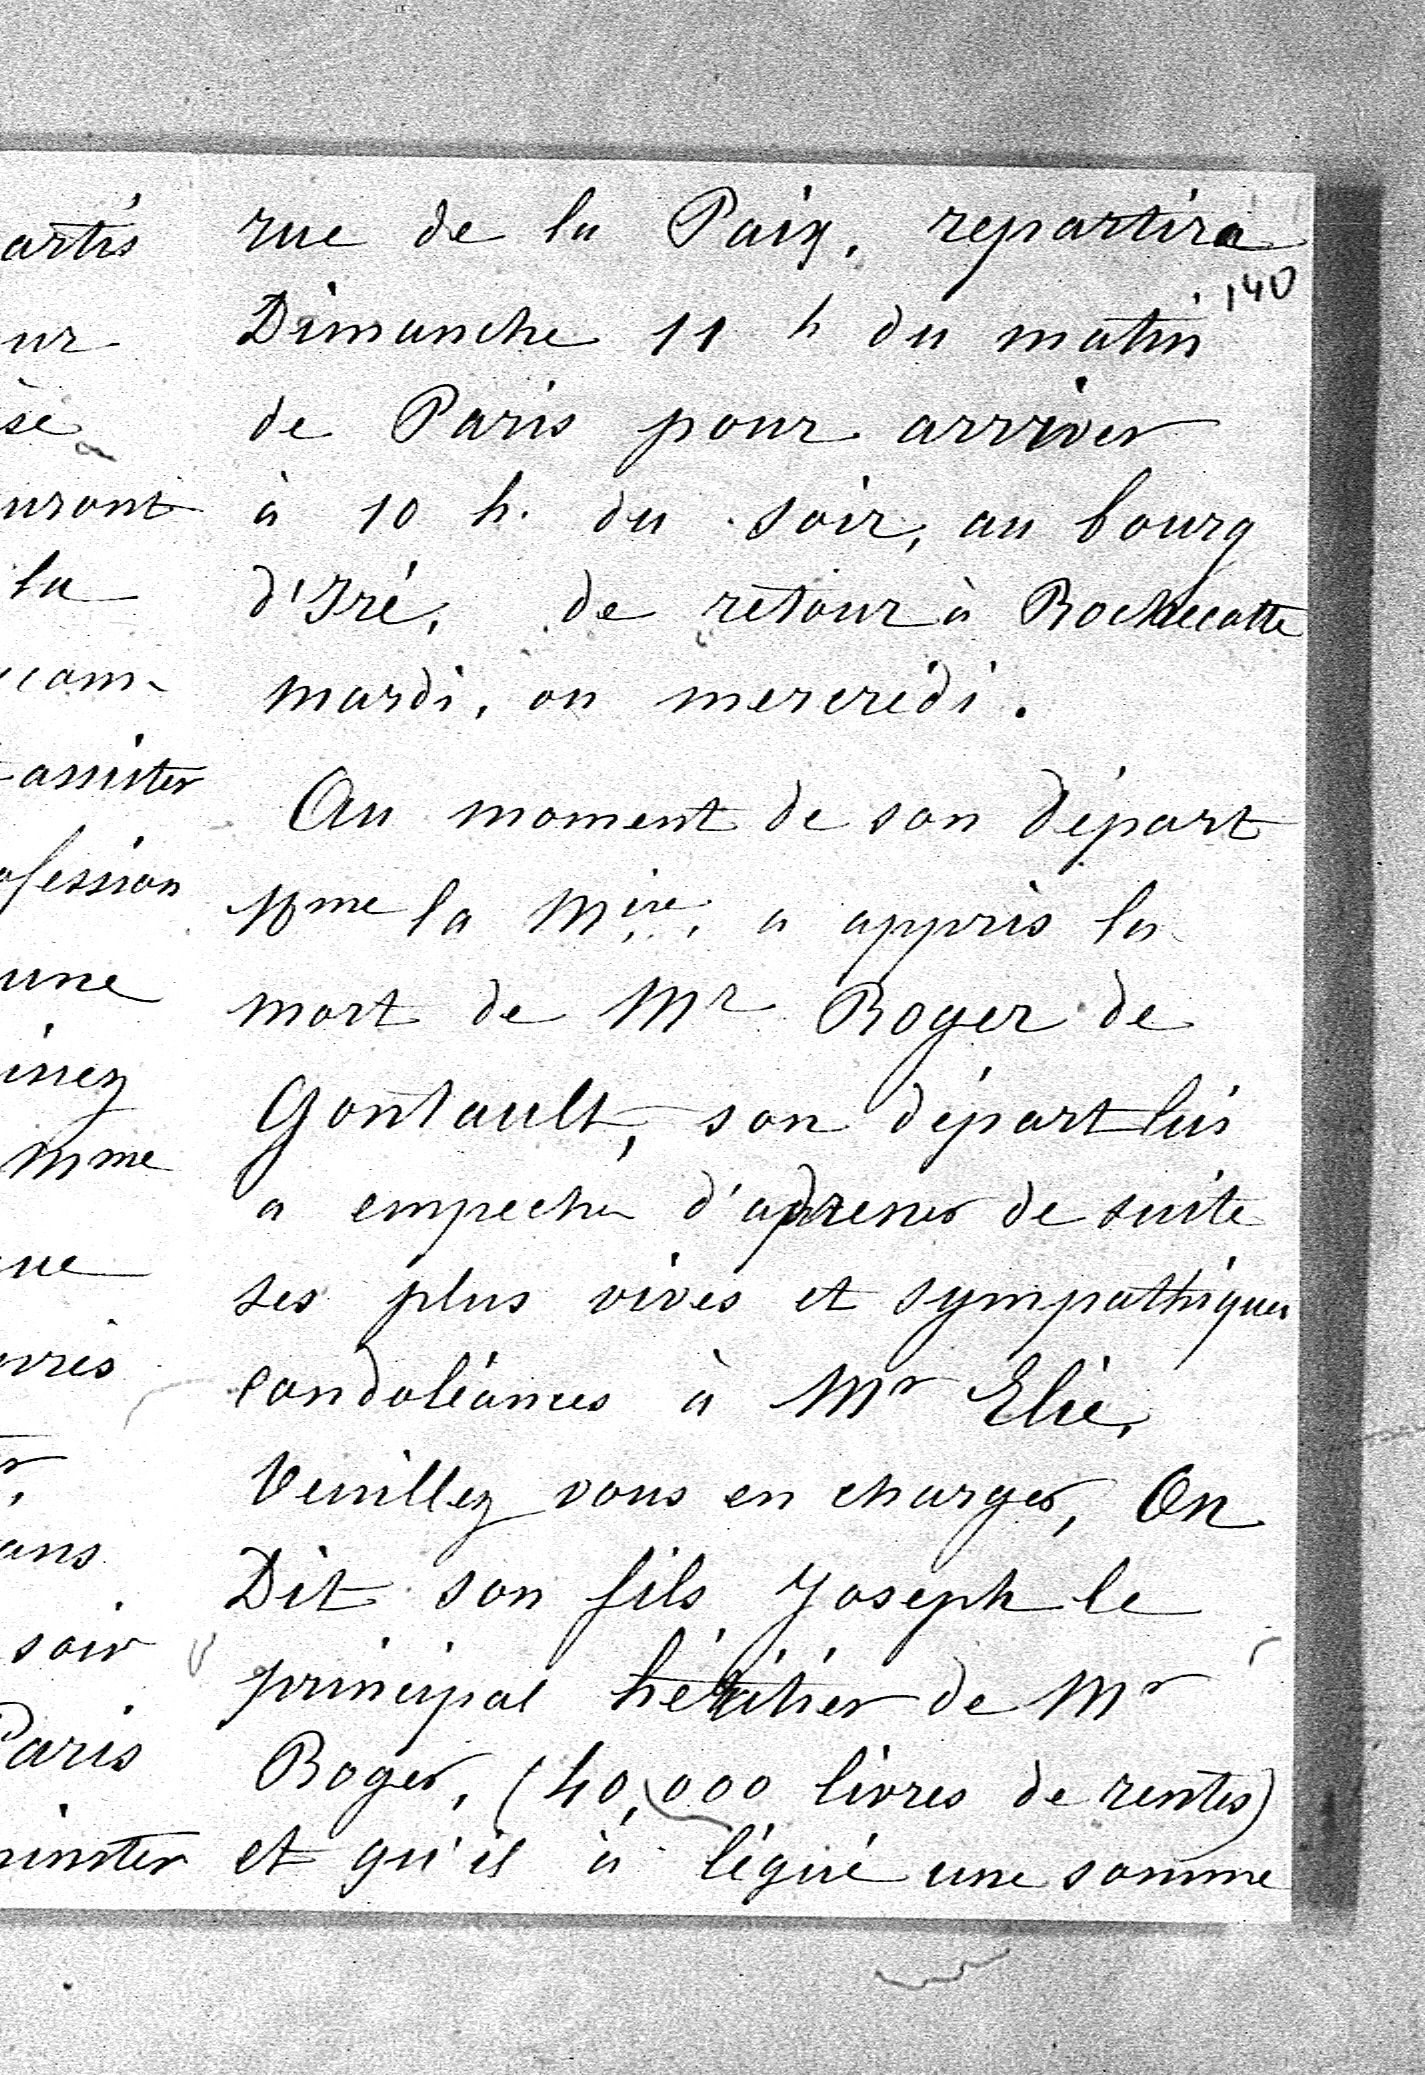 artis
ur
sé
uront
la
ccom-
assister
ofession
une
inez
Mme
ue
vris
ans
soir
Paris
rue de la Paix, repartira
140
Dimanche 11 h du matin
de Paris pour arriver
à 10 h. du soir, au bourg
d'Iré, de retour à Rochecotte
mardi, ou mercredi.
Au moment de son départ
Mme la Mise, a appris la
mort de Mr Roger de
Gontault, son départ lui
a empecher d'adresser de suite
ses plus vives et sympathiques
condoléances à Mr Elie,
Veuillez vous en charger, On
Dit son fils Joseph le
principal héritier de Mr
Roger, (40,000 livres de rentes)
et qu'il à légué une somme